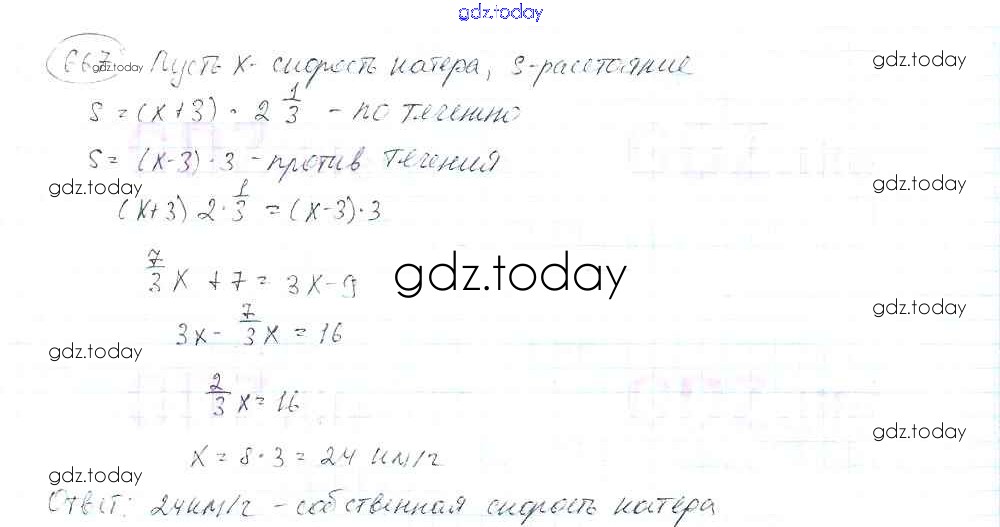 gdz.today
667 gdz.today Пусть х - скорость катера, S-расстояние gdz.today
S = (x+3) · 2 1/3 - по течению
S = (x-3) · 3 - против течения
gdz.today gdz.today
(x+3) 2 · 1/3 = (x-3) · 3
7/3 x + 7 = 3x - 9 gdz.today
gdz.today
3x - 7/3 x = 16
gdz.today
2/3 x = 16
gdz.today
x = 8 · 3 = 24 км/г
gdz.today
Ответ: 24км/г - собственная скорость катера